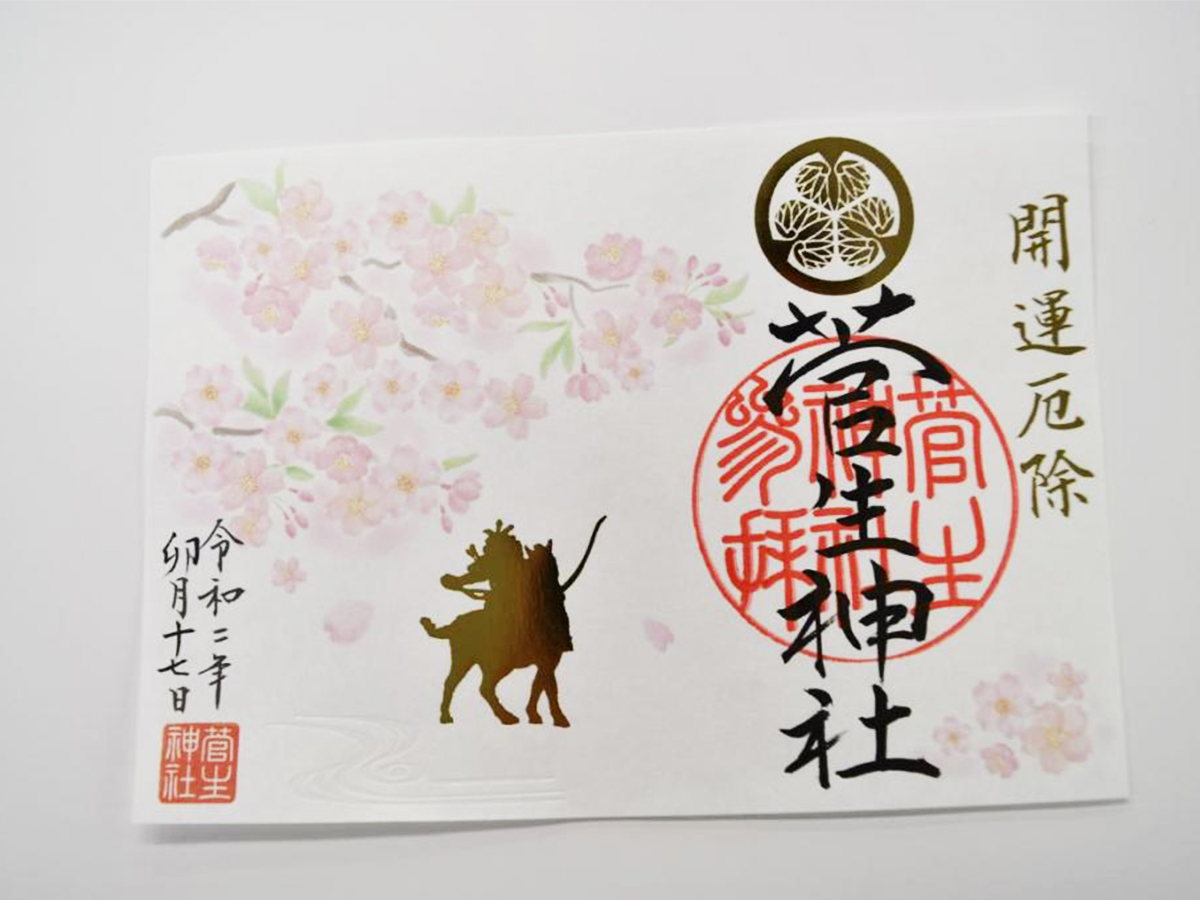 開運厄除
菅生神社
菅生
神社
参拝
令和二年
卯月十七日
菅生
神社